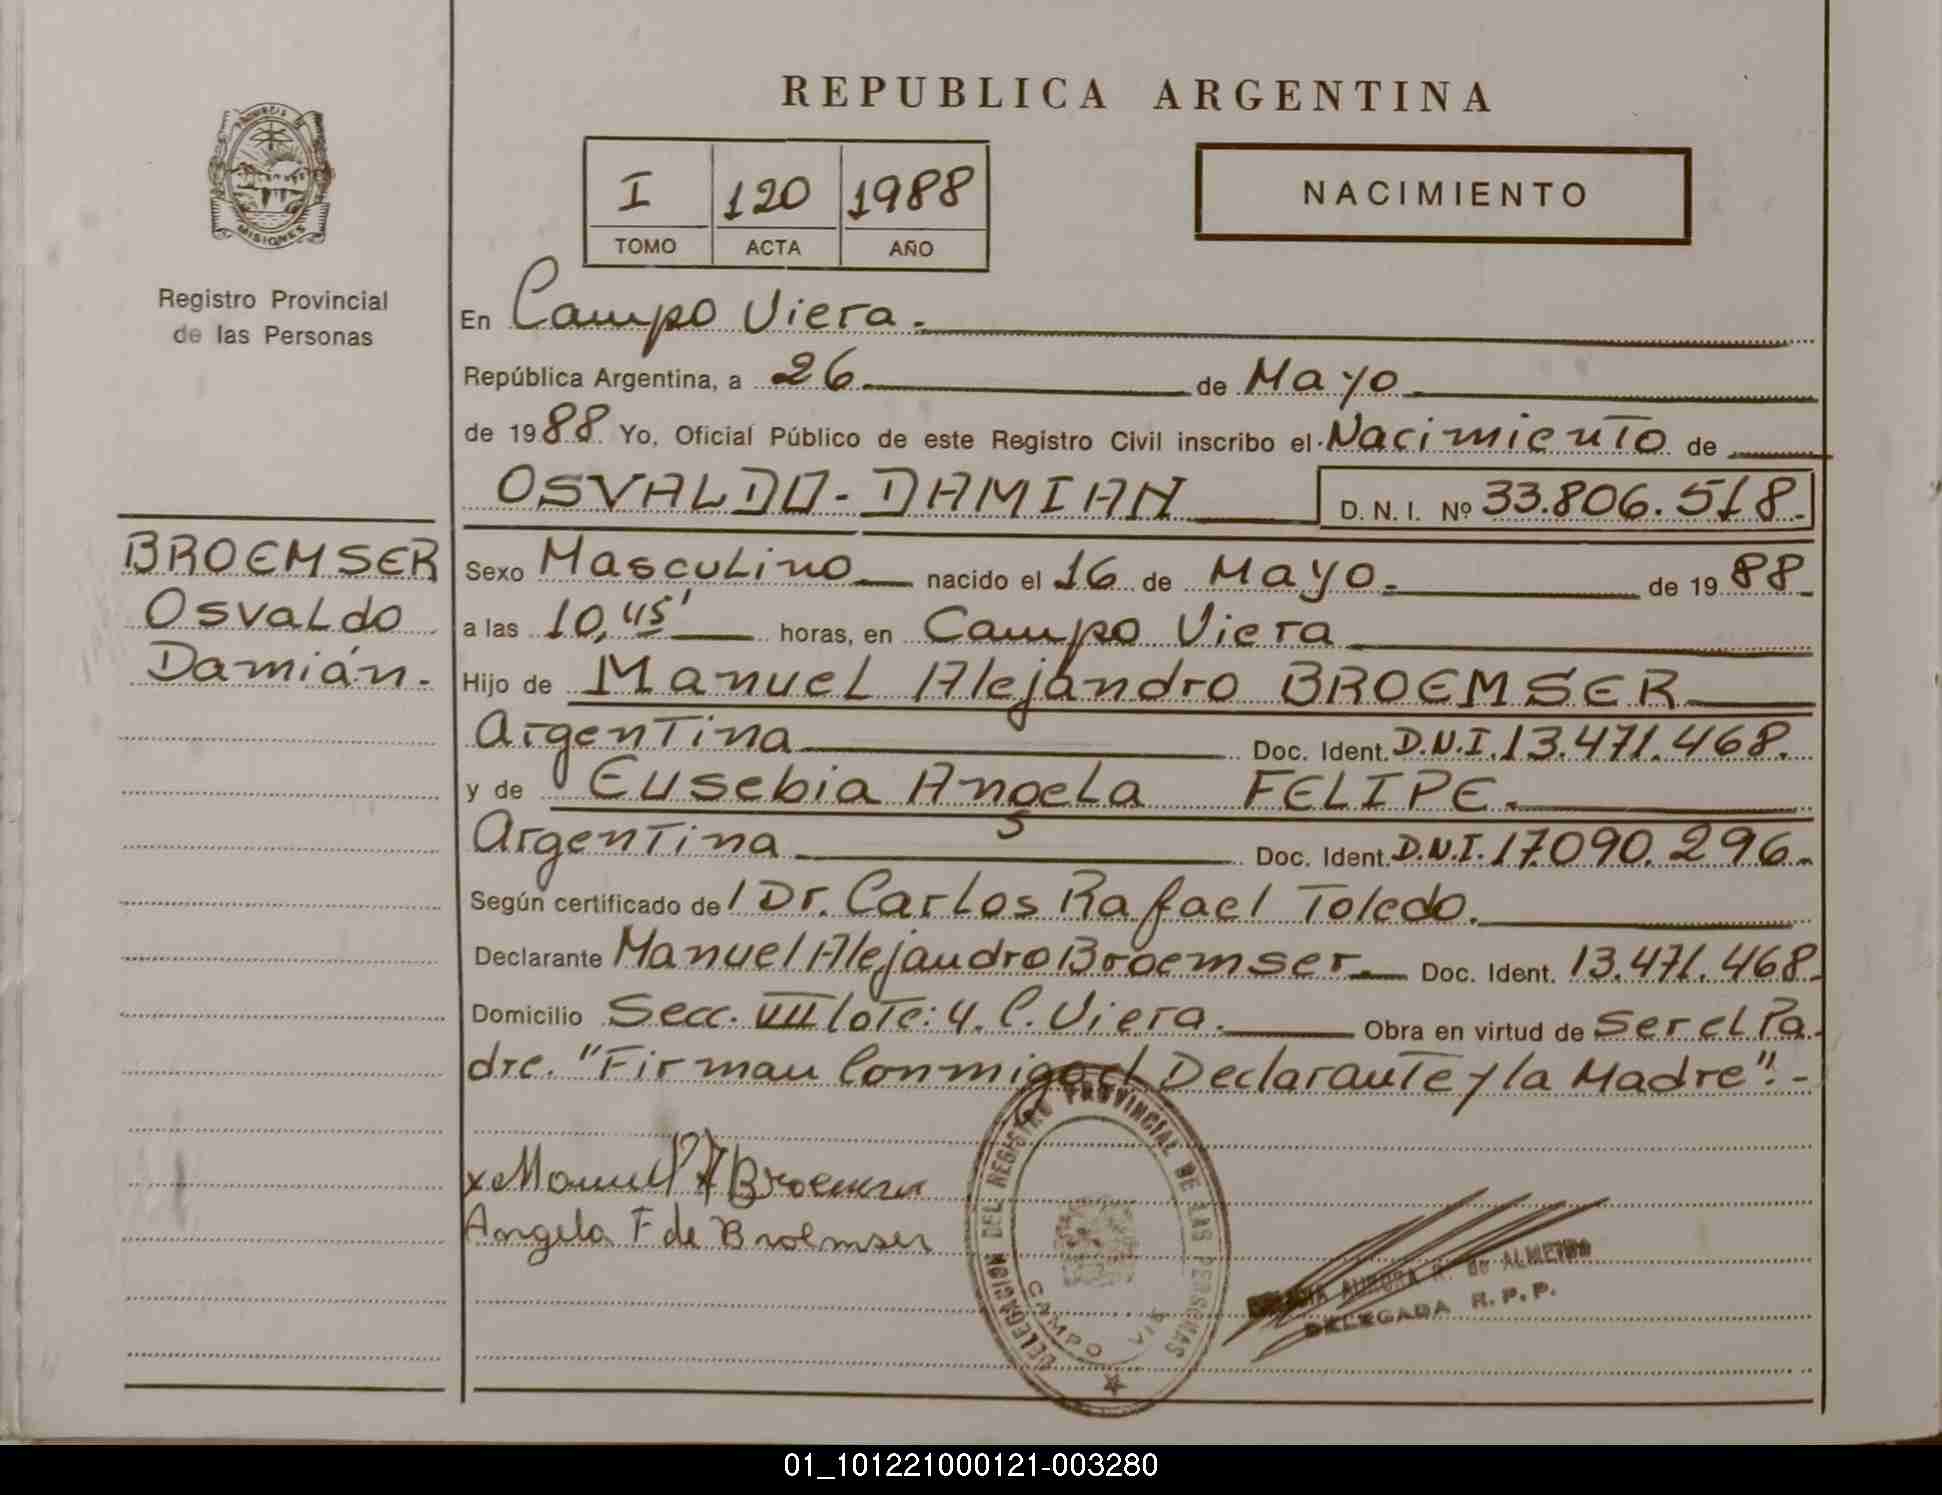 REPUBLICA ARGENTINA
PROVINCIA DE
MISIONES
Registro Provincial
de las Personas
I 120 1988
TOMO ACTA AÑO
NACIMIENTO
En Campo Viera.
República Argentina, a 26 de Mayo
de 1988 Yo, Oficial Público de este Registro Civil inscribo el Nacimiento de
OSVALDO-DAMIAN D. N. I. Nº 33.806.518.-
BROEMSER
Osvaldo
Damián.-
Sexo Masculino nacido el 16 de Mayo.- de 1988.-
a las 10,45' horas, en Campo Viera
Hijo de Manuel Alejandro BROEMSER
Argentina Doc. Ident. D.N.I. 13.471.468.
y de Eusebia Angela FELIPE.
Argentina Doc. Ident. D.N.I. 17.090.296.-
Según certificado del Dr. Carlos Rafael Toledo.
Declarante Manuel Alejandro Broemser.- Doc. Ident. 13.471.468.-
Domicilio Secc. VIII lote: 4. C. Viera. Obra en virtud de Ser el Pa-
dre. "Firman Conmigo el Declarante y la Madre".-
x Manuel A Broemser
Angela F de Broemser
DELEGACION DEL REGISTRO PROVINCIAL DE LAS PERSONAS
CAMPO VIE
AURORA R. de ALMEIDA
DELEGADA R.P.P.
01_101221000121-003280